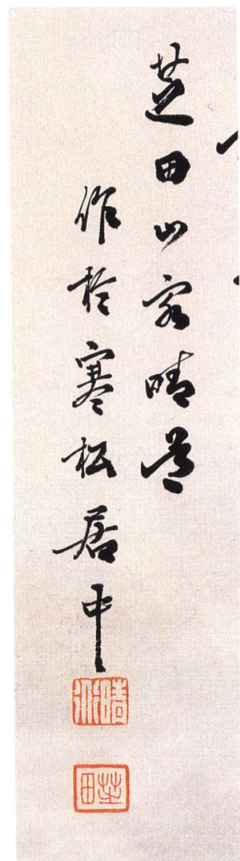 芝田山客晴㠀
作於寒松居中
芝田